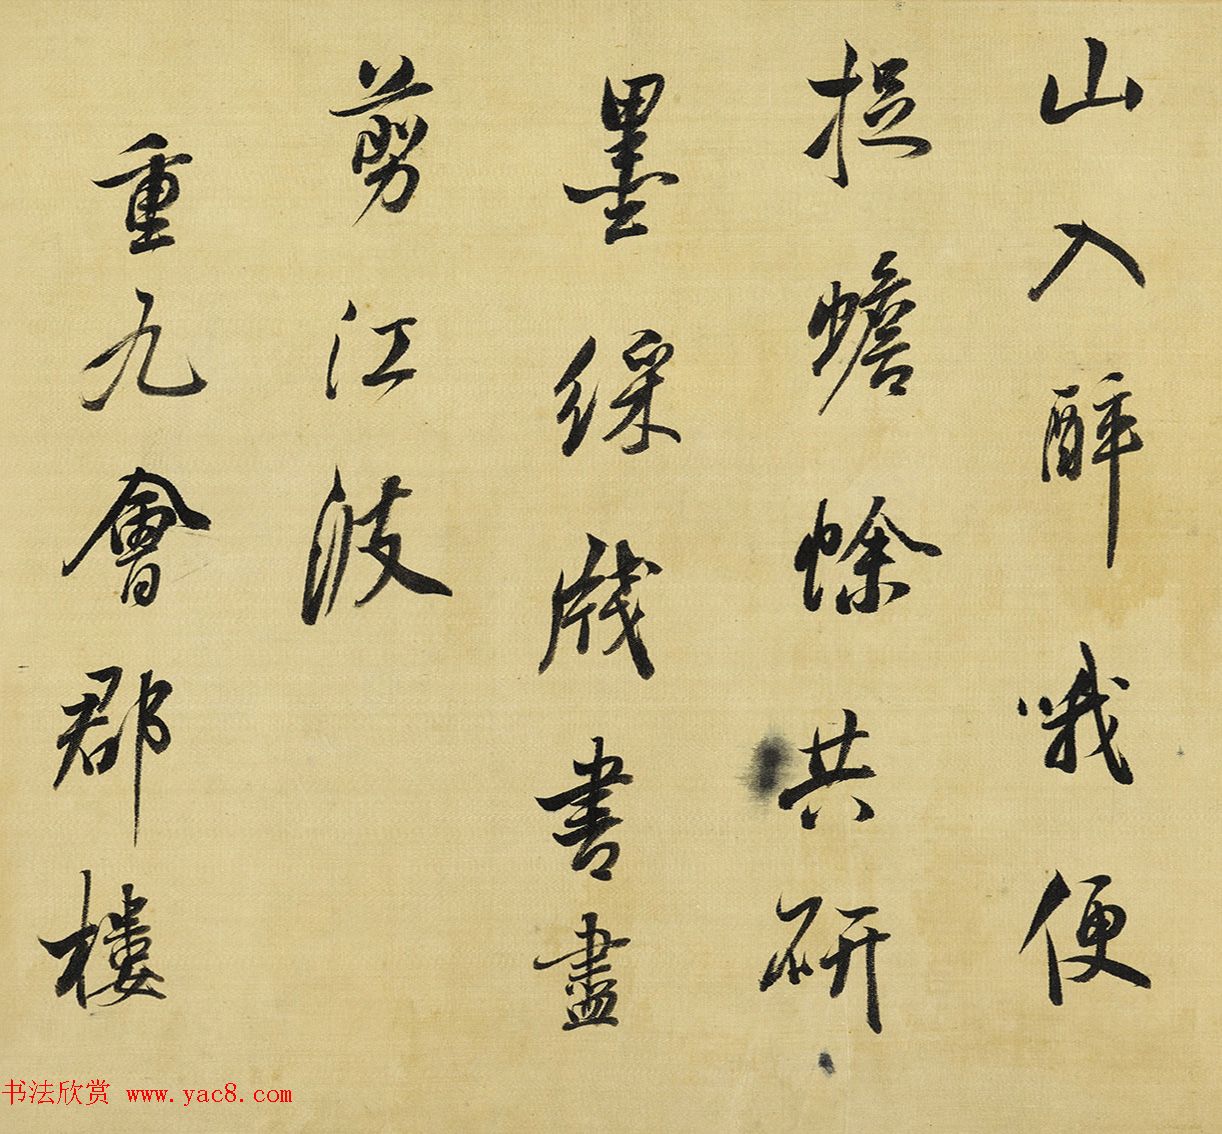 山入醉哦便
捉蟾蜍共研
墨綵牋書盡
剪江波
重九會郡樓
书法欣赏 www.yac8.com